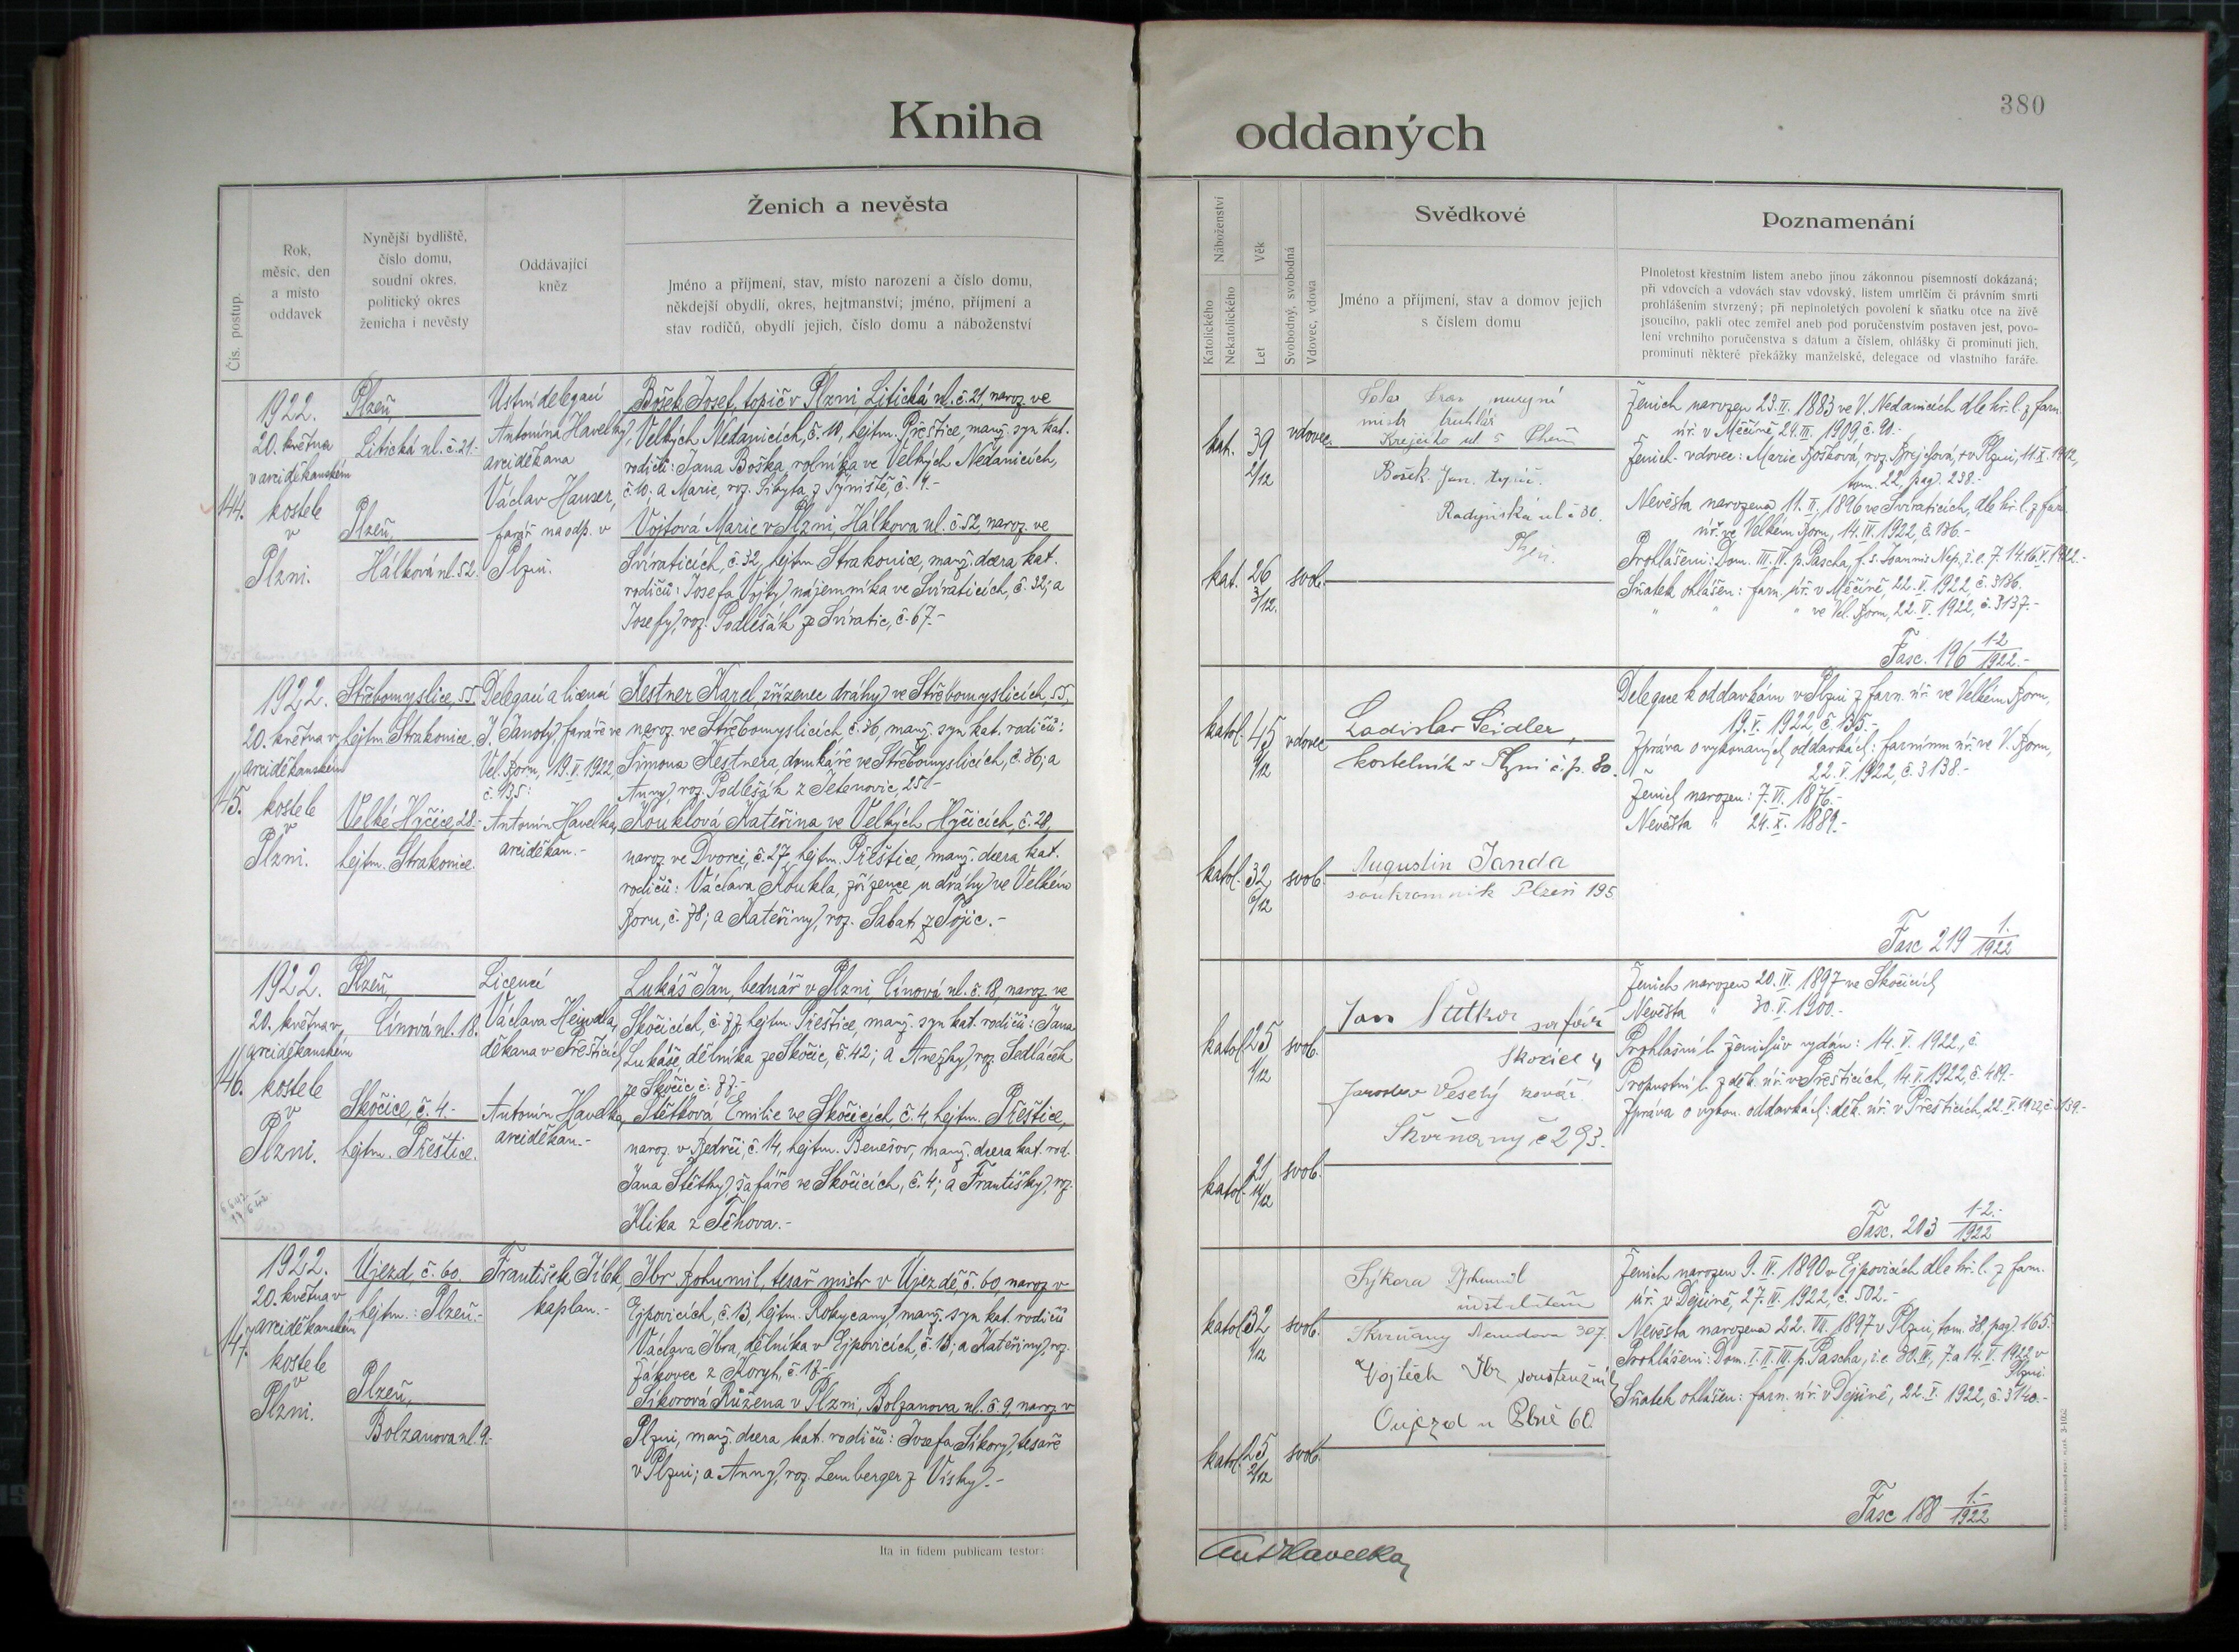 380
Kniha
oddaných
Čís. postup.
Rok,
měsíc, den
a místo
oddavek
Nynější bydliště,
číslo domu,
soudní okres,
politický okres
ženicha i nevěsty
Oddávající
kněz
Ženich a nevěsta
Jméno a příjmení, stav, místo narození a číslo domu,
někdejší obydlí, okres, hejtmanství; jméno, příjmení a
stav rodičů, obydlí jejich, číslo domu a náboženství
Náboženství
Katolického
Nekatolického
Věk
Let
Svobodný, svobodná
Vdovec, vdova
Svědkové
Jméno a příjmení, stav a domov jejich
s číslem domu
Poznamenání
Plnoletost křestním listem anebo jinou zákonnou písemností dokázaná;
při vdovcích a vdovách stav vdovský, listem úmrtčím či právním smrti
prohlášením stvrzený; při neplnoletých povolení k sňatku otce na živě
jsoucího, pakli otec zemřel aneb pod poručenstvím postaven jest, povo-
lení vrchního poručenstva s datum a číslem, ohlášky či prominutí jich,
prominutí některé překážky manželské, delegace od vlastního faráře.
144.
1922.
20. května
v arciděkanském
kostele
v
Plzni.
Plzeň,
Litická ul. č. 21.-
Plzeň,
Hálkova ul. 52.
Ústní delegací
Antonína Havelky,
arciděkana
Václav Hauser,
farář na odp. v
Plzni.
Bošek Josef, topič v Plzni Litická ul. č. 21, naroz. ve
Velkých Nedanicích, č. 10, hejtm. Přeštice, manž. syn kat.
rodičů: Jana Boška, rolníka ve Velkých Nedanicích,
č. 10; a Marie, roz. Sibyta z Týniště, č. 4.-
Vojtová Marie v Plzni, Hálkova ul. č. 52, naroz. ve
Svíraticích, č. 32, hejtm. Strakonice, manž. dcera kat.
rodičů: Josefa Vojty, nájemníka ve Svíraticích, č. 32; a
Josefy, roz. Podlešák ze Svíratic, č. 67.-
kat. 39 2/12 vdovec
kat. 26 3/12. svob.
mistr truhlář
Krejčího ul
Bošek Jan. topič.
Radyňská ul č
Plzni.
Ženich narozen 23. II. 1883 ve V. Nedanicích dle kř. l. z farn.
úř. v Měčíně, 24. III. 1909, č. 90.-
Ženich - vdovec: Marie Bošková, roz. Brejchová, + v Plzni, 11. II. 1912,
tom. 22, pag. 238.-
Nevěsta narozena 11. II. 1896 ve Svíraticích, dle kř. l. z farn.
úř. ve Velkém Boru, 14. IV. 1922, č. 136.-
Prohlášeni: Dom. III. IV. p. Pascha, f. s. Joannis Nep., i. e. 7. 14. 16. V. 1922.-
Sňatek ohlášen: farn. úř. v Měčíně, 22. V. 1922, č. 3136.
" " " ve Vel. Boru, 22. V. 1922, č. 3137.-
Fasc. 196 1-2/1922.-
145.
1922.
20. května v
arciděkanském
kostele
v
Plzni.
Střebomyslice, 55,
hejtm. Strakonice.
Velké Hyčice, 28.-
hejtm. Strakonice.
Delegací a licencí
J. Janoty, faráře ve
Vel. Boru, 19. V. 1922,
č. 135:
Antonín Havelka,
arciděkan.-
Kestner Karel, zřízenec dráhy ve Střebomyslicích, 55,
naroz. ve Střebomyslicích, č. 36, manž. syn kat. rodičů:
Šimona Kestnera, domkáře ve Střebomyslicích, č. 36; a
Anny, roz. Podlešák z Jetenovic, 25.-
Kouklová Kateřina ve Velkých Hyčicích, č. 20,
naroz. ve Dvorci, č. 27, hejtm. Přeštice, manž. dcera kat.
rodičů: Václava Koukla, zřízence u dráhy ve Velkém
Boru, č. 78; a Kateřiny, roz. Sabat z Pojic.-
katol. 45 11/12 vdovec
katol. 32 6/12 svob.
Ladislav Seidler,
kostelník v Plzni č. p. 80.
Augustin Janda
soukromník Plzeň 195
Delegace k oddavkám v Plzni z farn. úř. ve Velkém Boru,
19. V. 1922, č. 135.-
Zpráva o vykonaných oddavkách: farnímu úř. ve V. Boru,
22. V. 1922, č. 3138.-
Ženich narozen: 7. VI. 1876.-
Nevěsta " 24. X. 1889.-
Fasc 219 1./1922
146.
1922.
20. května v
arciděkanském
kostele
v
Plzni.
Plzeň,
Cínová ul. 18.
Skočice, č. 4.-
hejtm. Přeštice.
Licencí
Václava Hejndla,
děkana v Přešticích,
Antonín Havelka,
arciděkan.-
Lukáš Jan, bednář v Plzni, Cínová ul. č. 18, naroz. ve
Skočicích, č. 77, hejtm. Přeštice, manž. syn kat. rodičů: Jana
Lukáše, dělníka ze Skočic, č. 42; a Anežky, roz. Sedláček
ze Skočic, č. 77.-
Štětková Emilie ve Skočicích, č. 4, hejtm. Přeštice,
naroz. v Bedrči, č. 14, hejtm. Benešov, manž. dcera kat. rod.
Jana Štětky, šafáře ve Skočicích, č. 4; a Františky, roz.
Klika z Těhova.-
katol. 25 1/12 svob.
katol. 21 11/12 svob.
Jan šafář
Skočice 4
Jaroslav Veselý kovář
Skvrňany č 293.
Ženich narozen 20. IV. 1897 ve Skočicích
Nevěsta " 30. V. 1900.-
Prohlašní l. ženichův vydán: 14. V. 1922, č.
Propustní l. z děk. úř. v Přešticích, 14. V. 1922, č. 489.-
Zpráva o vykon. oddavkách: děk. úř. v Přešticích, 22. V. 1922, č. 3139.-
Fasc. 203 1-2.-/1922
147.
1922.
20. května v
arciděkanském
kostele
v
Plzni.
Újezd, č. 60,
hejtm.: Plzeň.-
Plzeň,
Bolzanova ul. 9.-
František Jílek,
kaplan.-
Ibr Bohumil, tesař. mistr v Újezdě, č. 60, naroz. v
Ejpovicích, č. 13, hejtm. Rokycany, manž. syn kat. rodičů
Václava Ibra, dělníka v Ejpovicích, č. 13; a Kateřiny, roz.
Žákovec z Koryt, č. 17.-
Sikorová Růžena v Plzni, Bolzanova ul. č. 9, naroz. v
Plzni, manž. dcera kat. rodičů: Josefa Sikory, tesaře
v Plzni; a Anny, roz. Lemberger z Vísky.-
katol. 32 1/12 svob.
katol. 25 2/12 svob.
Sýkora Bohumil
Skvrňany Nerudova 307.
Vojtěch Ibr soustružník
Oujezd u Plzně 60
Ženich narozen 9. IV. 1890 v Ejpovicích dle kř. l. z farn.
úř. v Dejšině, 27. IV. 1922, č. 502.-
Nevěsta narozena 22. III. 1897 v Plzni, tom. 38, pag. 165.
Prohlášeni: Dom. I. II. III. p. Pascha, i. e. 30. IV., 7. a 14. V. 1922 v
Plzni.
Sňatek ohlášen: farn. úř. v Dejšině, 22. V. 1922, č. 3140.-
Fasc 188 1.-/1922
Ita in fidem publicam testor:
Ant Havelka